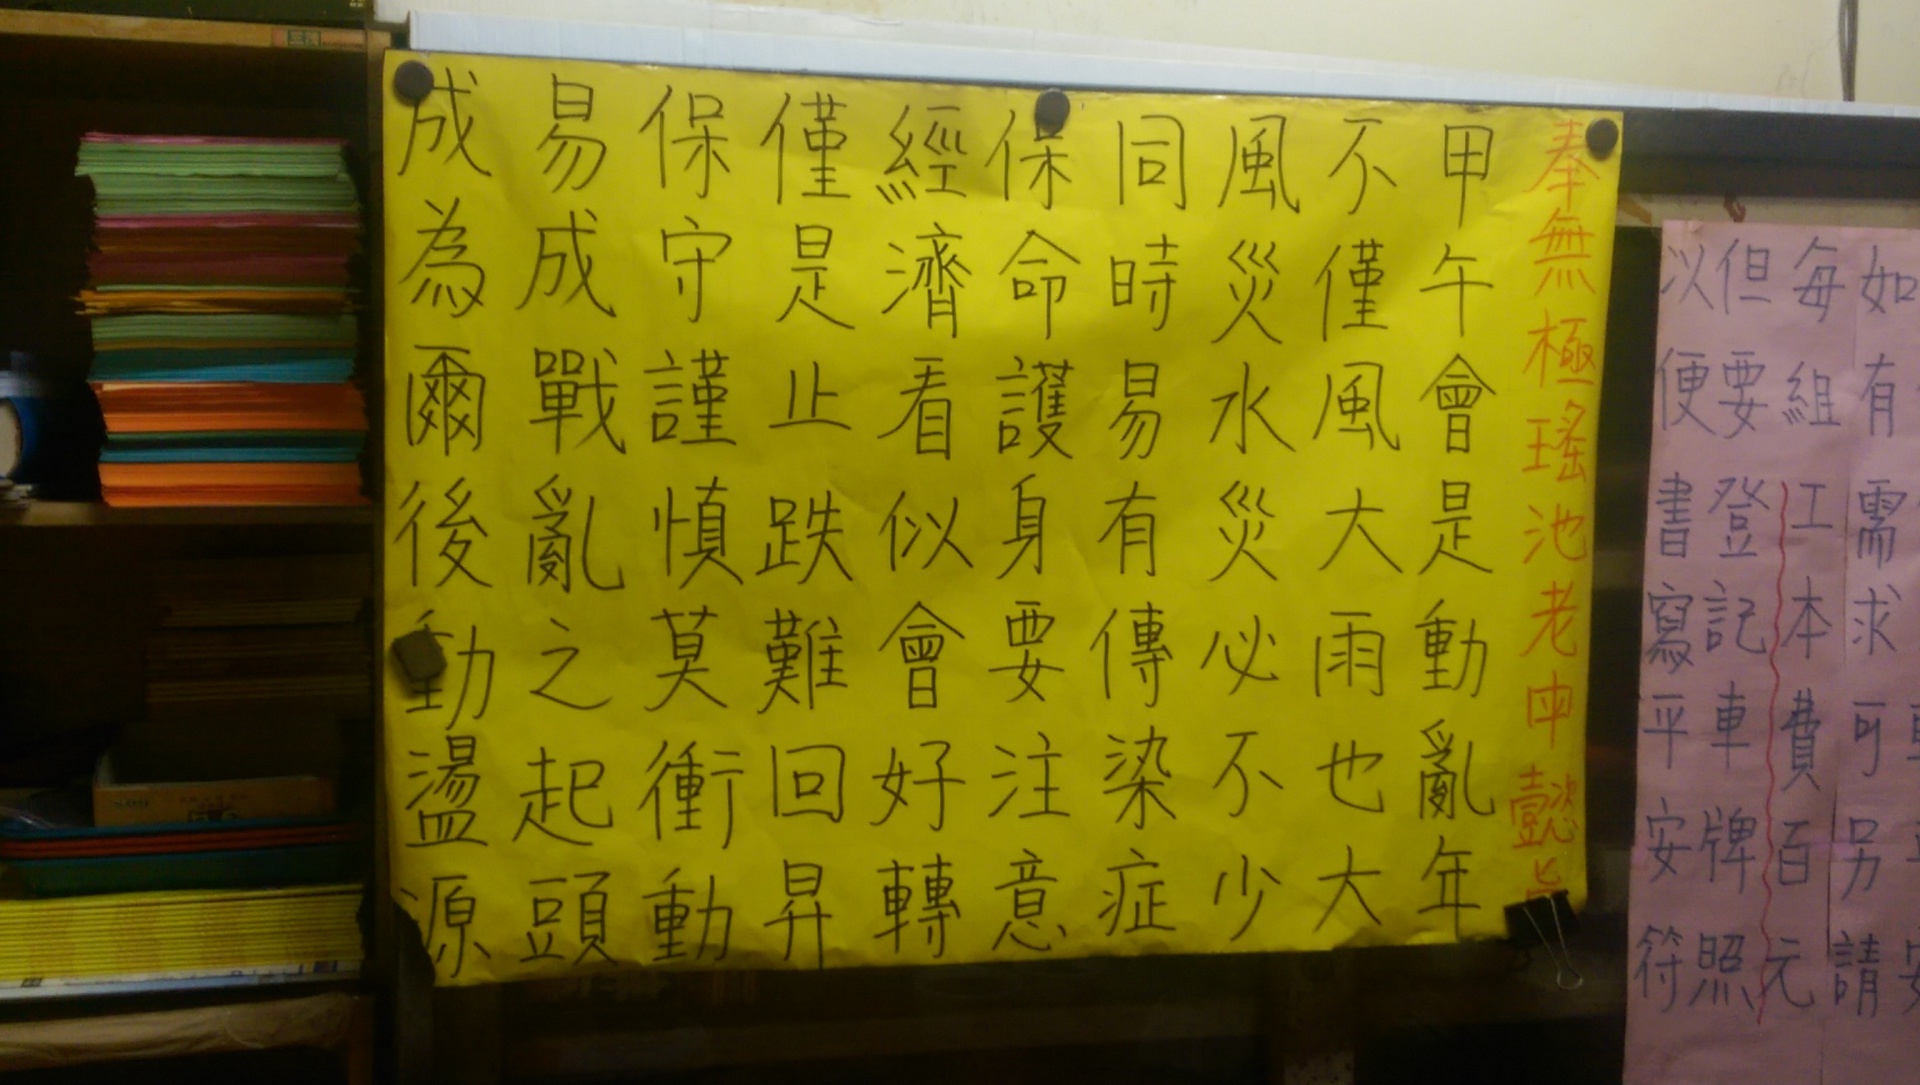 奉無極瑤池老中懿旨
甲午會是動亂年
不僅風大雨也大
風災水災必不少
同時易有傳染症
保命護身要注意
經濟看似會好轉
僅是止跌難回昇
保守謹慎莫衝動
易成戰亂之起頭
成為爾後動盪源
如有需求可另請
每組工本費百元
但要登記車牌照
以便書寫平安符